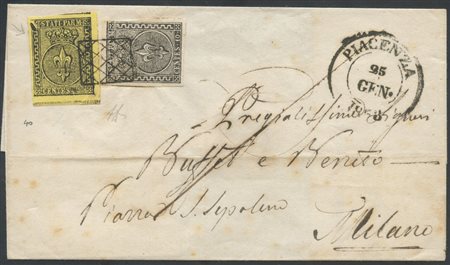 STATI PARM.
CENTES. 5
CENTES. 10
PIACENZA
25
GEN.
40
Pregiatissimi Signori
Buffet e Beruto
Piazza S. Sepolcro
Milano